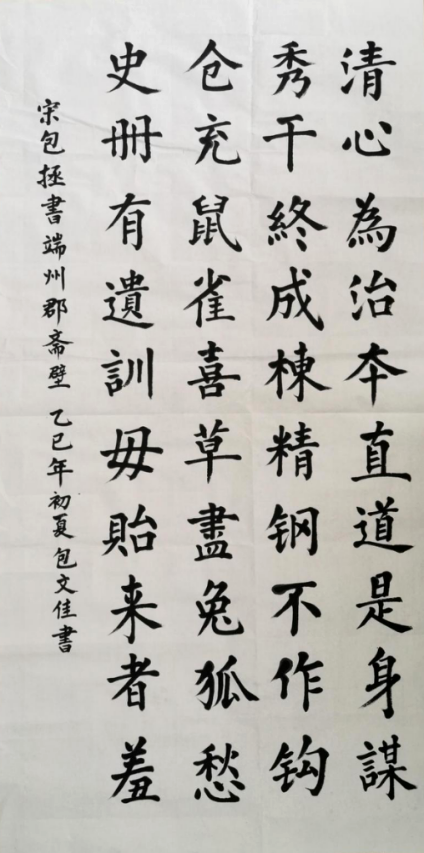 清心為治本直道是身謀
秀干終成棟精钢不作钩
仓充鼠雀喜草盡兔狐愁
史册有遺訓毋貽来者羞
宋包拯書端州郡斋壁 乙巳年初夏包文佳書